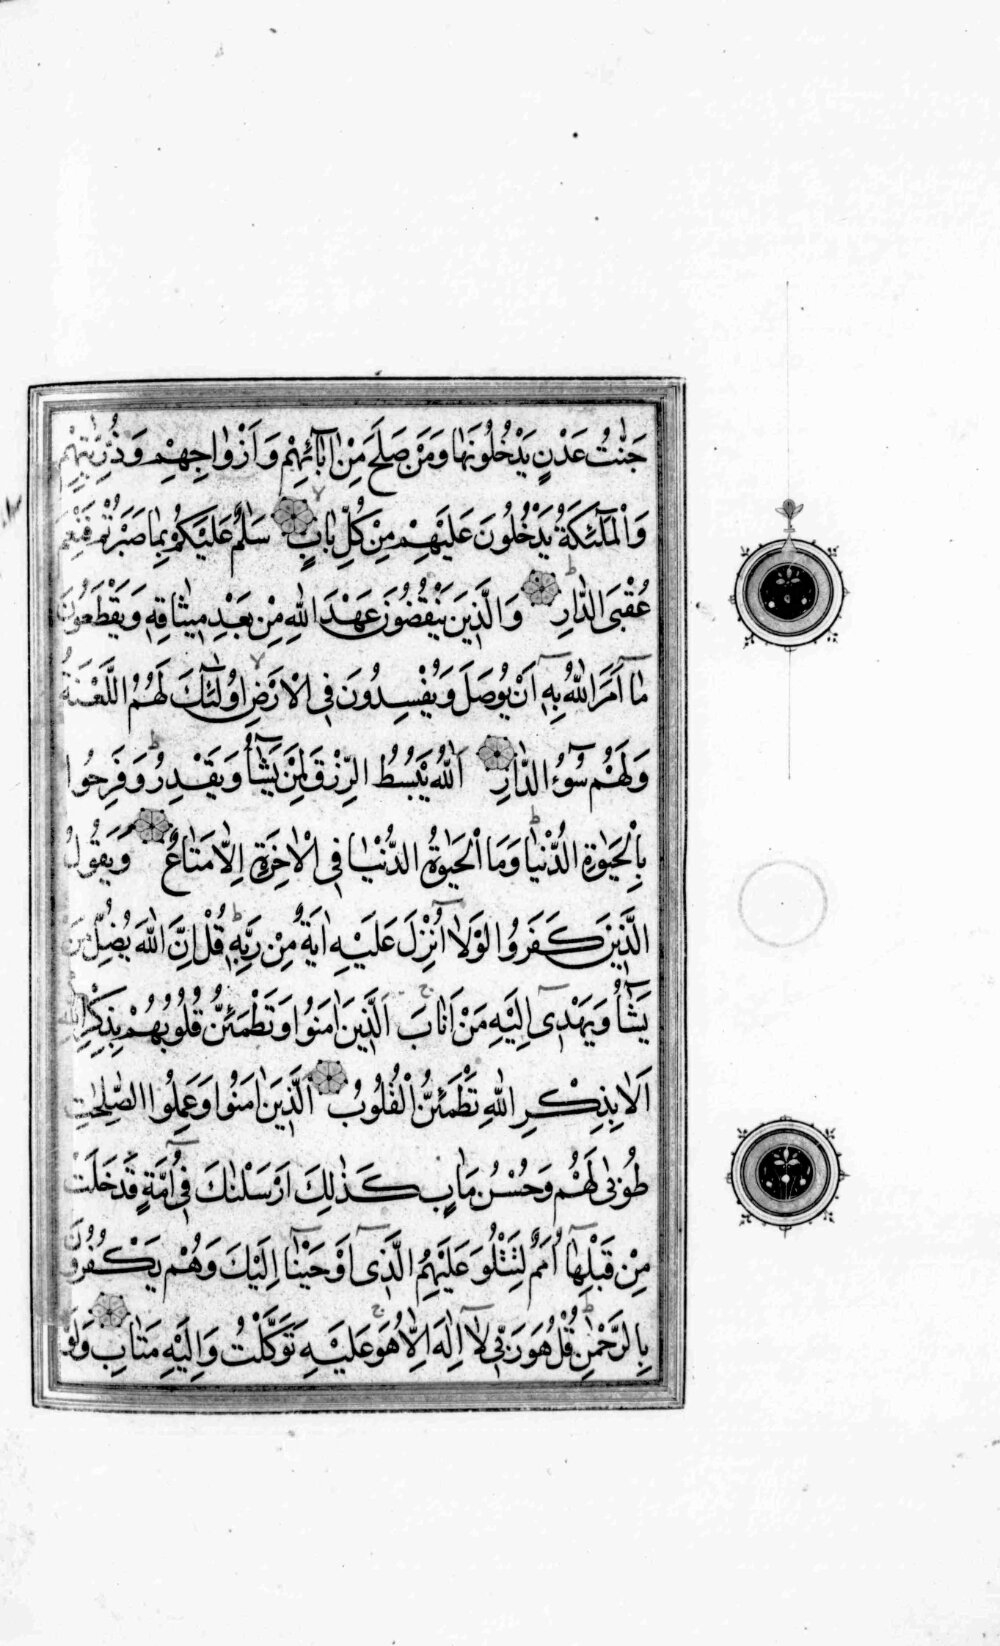 جَنّٰتُ عَدْنٍ يَدْخُلُونَهٰا وَمَنْ صَلَحَ مِنْ اٰبٰٓائِهِمْ وَاَزْوٰاجِهِمْ وَذُرِّيّٰتِهِمْ
وَالْمَلٰٓئِكَةُ يَدْخُلُونَ عَلَيْهِمْ مِنْ كُلِّ بٰابٍ سَلٰمٌ عَلَيْكُمْ بِمٰا صَبَرْتُمْ فَنِعْمَ
عُقْبَى الدّٰارِ وَالَّذِينَ يَنْقُضُونَ عَهْدَ اللّٰهِ مِنْ بَعْدِ مِيثٰاقِهٖ وَيَقْطَعُونَ
مٰٓا اَمَرَ اللّٰهُ بِهٖٓ اَنْ يُوصَلَ وَيُفْسِدُونَ فِي الْاَرْضِ اُولٰٓئِكَ لَهُمُ اللَّعْنَةُ
وَلَهُمْ سُٓوءُ الدّٰارِ اَللّٰهُ يَبْسُطُ الرِّزْقَ لِمَنْ يَشٰٓاءُ وَيَقْدِرُ وَفَرِحُوا
بِالْحَيٰوةِ الدُّنْيٰا وَمَا الْحَيٰوةُ الدُّنْيٰا فِي الْاٰخِرَةِ اِلّٰا مَتٰاعٌ وَيَقُولُ
الَّذِينَ كَفَرُوا لَوْلٰٓا اُنْزِلَ عَلَيْهِ اٰيَةٌ مِنْ رَبِّهٖ قُلْ اِنَّ اللّٰهَ يُضِلُّ مَنْ
يَشٰٓاءُ وَيَهْدِٓي اِلَيْهِ مَنْ اَنٰابَ اَلَّذِينَ اٰمَنُوا وَتَطْمَئِنُّ قُلُوبُهُمْ بِذِكْرِ اللّٰهِ
اَلٰا بِذِكْرِ اللّٰهِ تَطْمَئِنُّ الْقُلُوبُ اَلَّذِينَ اٰمَنُوا وَعَمِلُوا الصّٰلِحٰاتِ
طُوبٰى لَهُمْ وَحُسْنُ مَاٰبٍ كَذٰلِكَ اَرْسَلْنٰكَ فِٓي اُمَّةٍ قَدْ خَلَتْ
مِنْ قَبْلِهٰٓا اُمَمٌ لِتَتْلُوَ عَلَيْهِمُ الَّذِٓي اَوْحَيْنٰٓا اِلَيْكَ وَهُمْ يَكْفُرُونَ
بِالرَّحْمٰنِ قُلْ هُوَ رَبِّي لٰٓا اِلٰهَ اِلّٰا هُوَ عَلَيْهِ تَوَكَّلْتُ وَاِلَيْهِ مَتٰابِ وَلَوْ